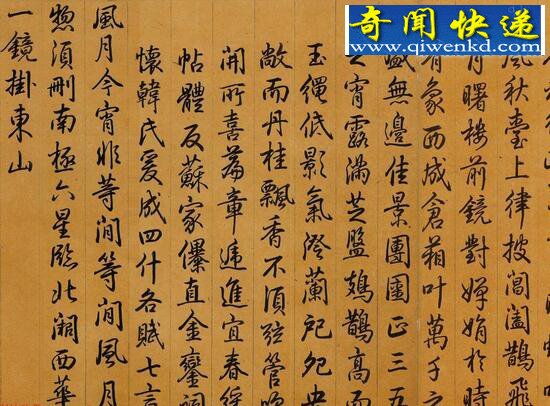 奇闻快递
www.qiwenkd.com
風秋臺上律披閶闔鵲飛
月曙樓前鏡對嬋娟於時
有象西成倉箱叶萬千之
盛無邊佳景團圞正三五
之宵露滿芝盤鳷鵲高而
玉繩低影氣澄蘭戺
敞而丹桂飄香不須弦管
開所喜篇章遞進宜春
帖體反蘇家儤直金鑾詞
懷韓氏爰成四什各賦七言
風月今宵非等閒等閒風月
惣須刪南極六星臨北闕西華
一鏡掛東山